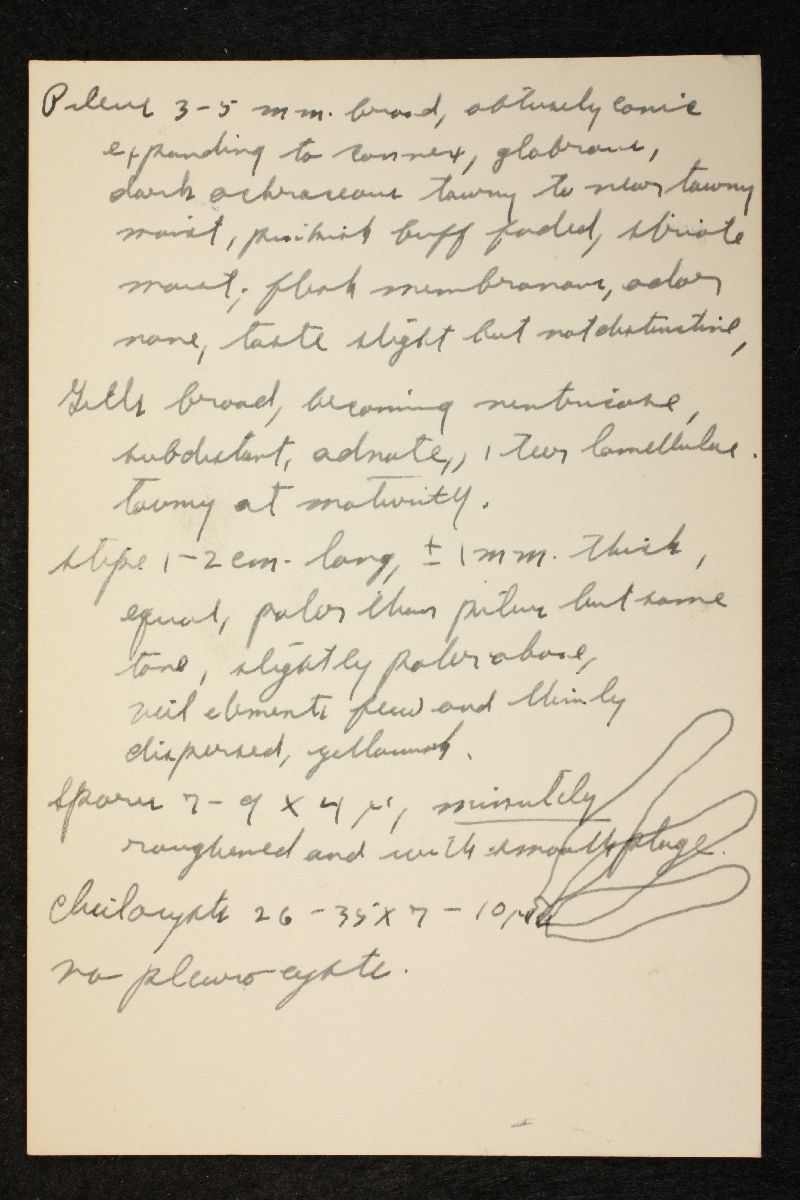 Pileus 3-5 mm. broad, obtusely conic
expanding to convex, glabrous,
dark ochraceous tawny to near tawny
moist, pinkish buff faded, striate
moist; flesh membranous, odor
none, taste slight but not distinctive,
Gills broad, becoming ventricose,
subdistant, adnate,, 1 tier lamellulae.
tawny at maturity.
stipe 1-2 cm. long, ± 1 mm. thick,
equal, paler than pileus but same
tone, slightly paler above,
veil elements few and thinly
dispersed, yellowish.
Spores 7-9 x 4 µ, minutely
roughened and with smooth plage.
Cheilocysts 26-35 x 7-10 µ
no pleurocysts.